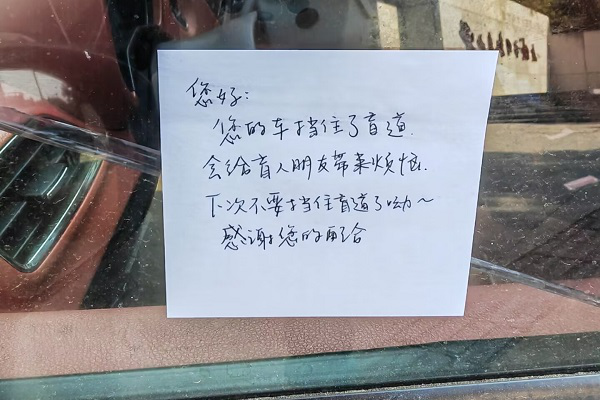 您好:
您的车挡住了盲道.
会给盲人朋友带来烦恼.
下次不要挡住盲道了呦~
感谢您的配合